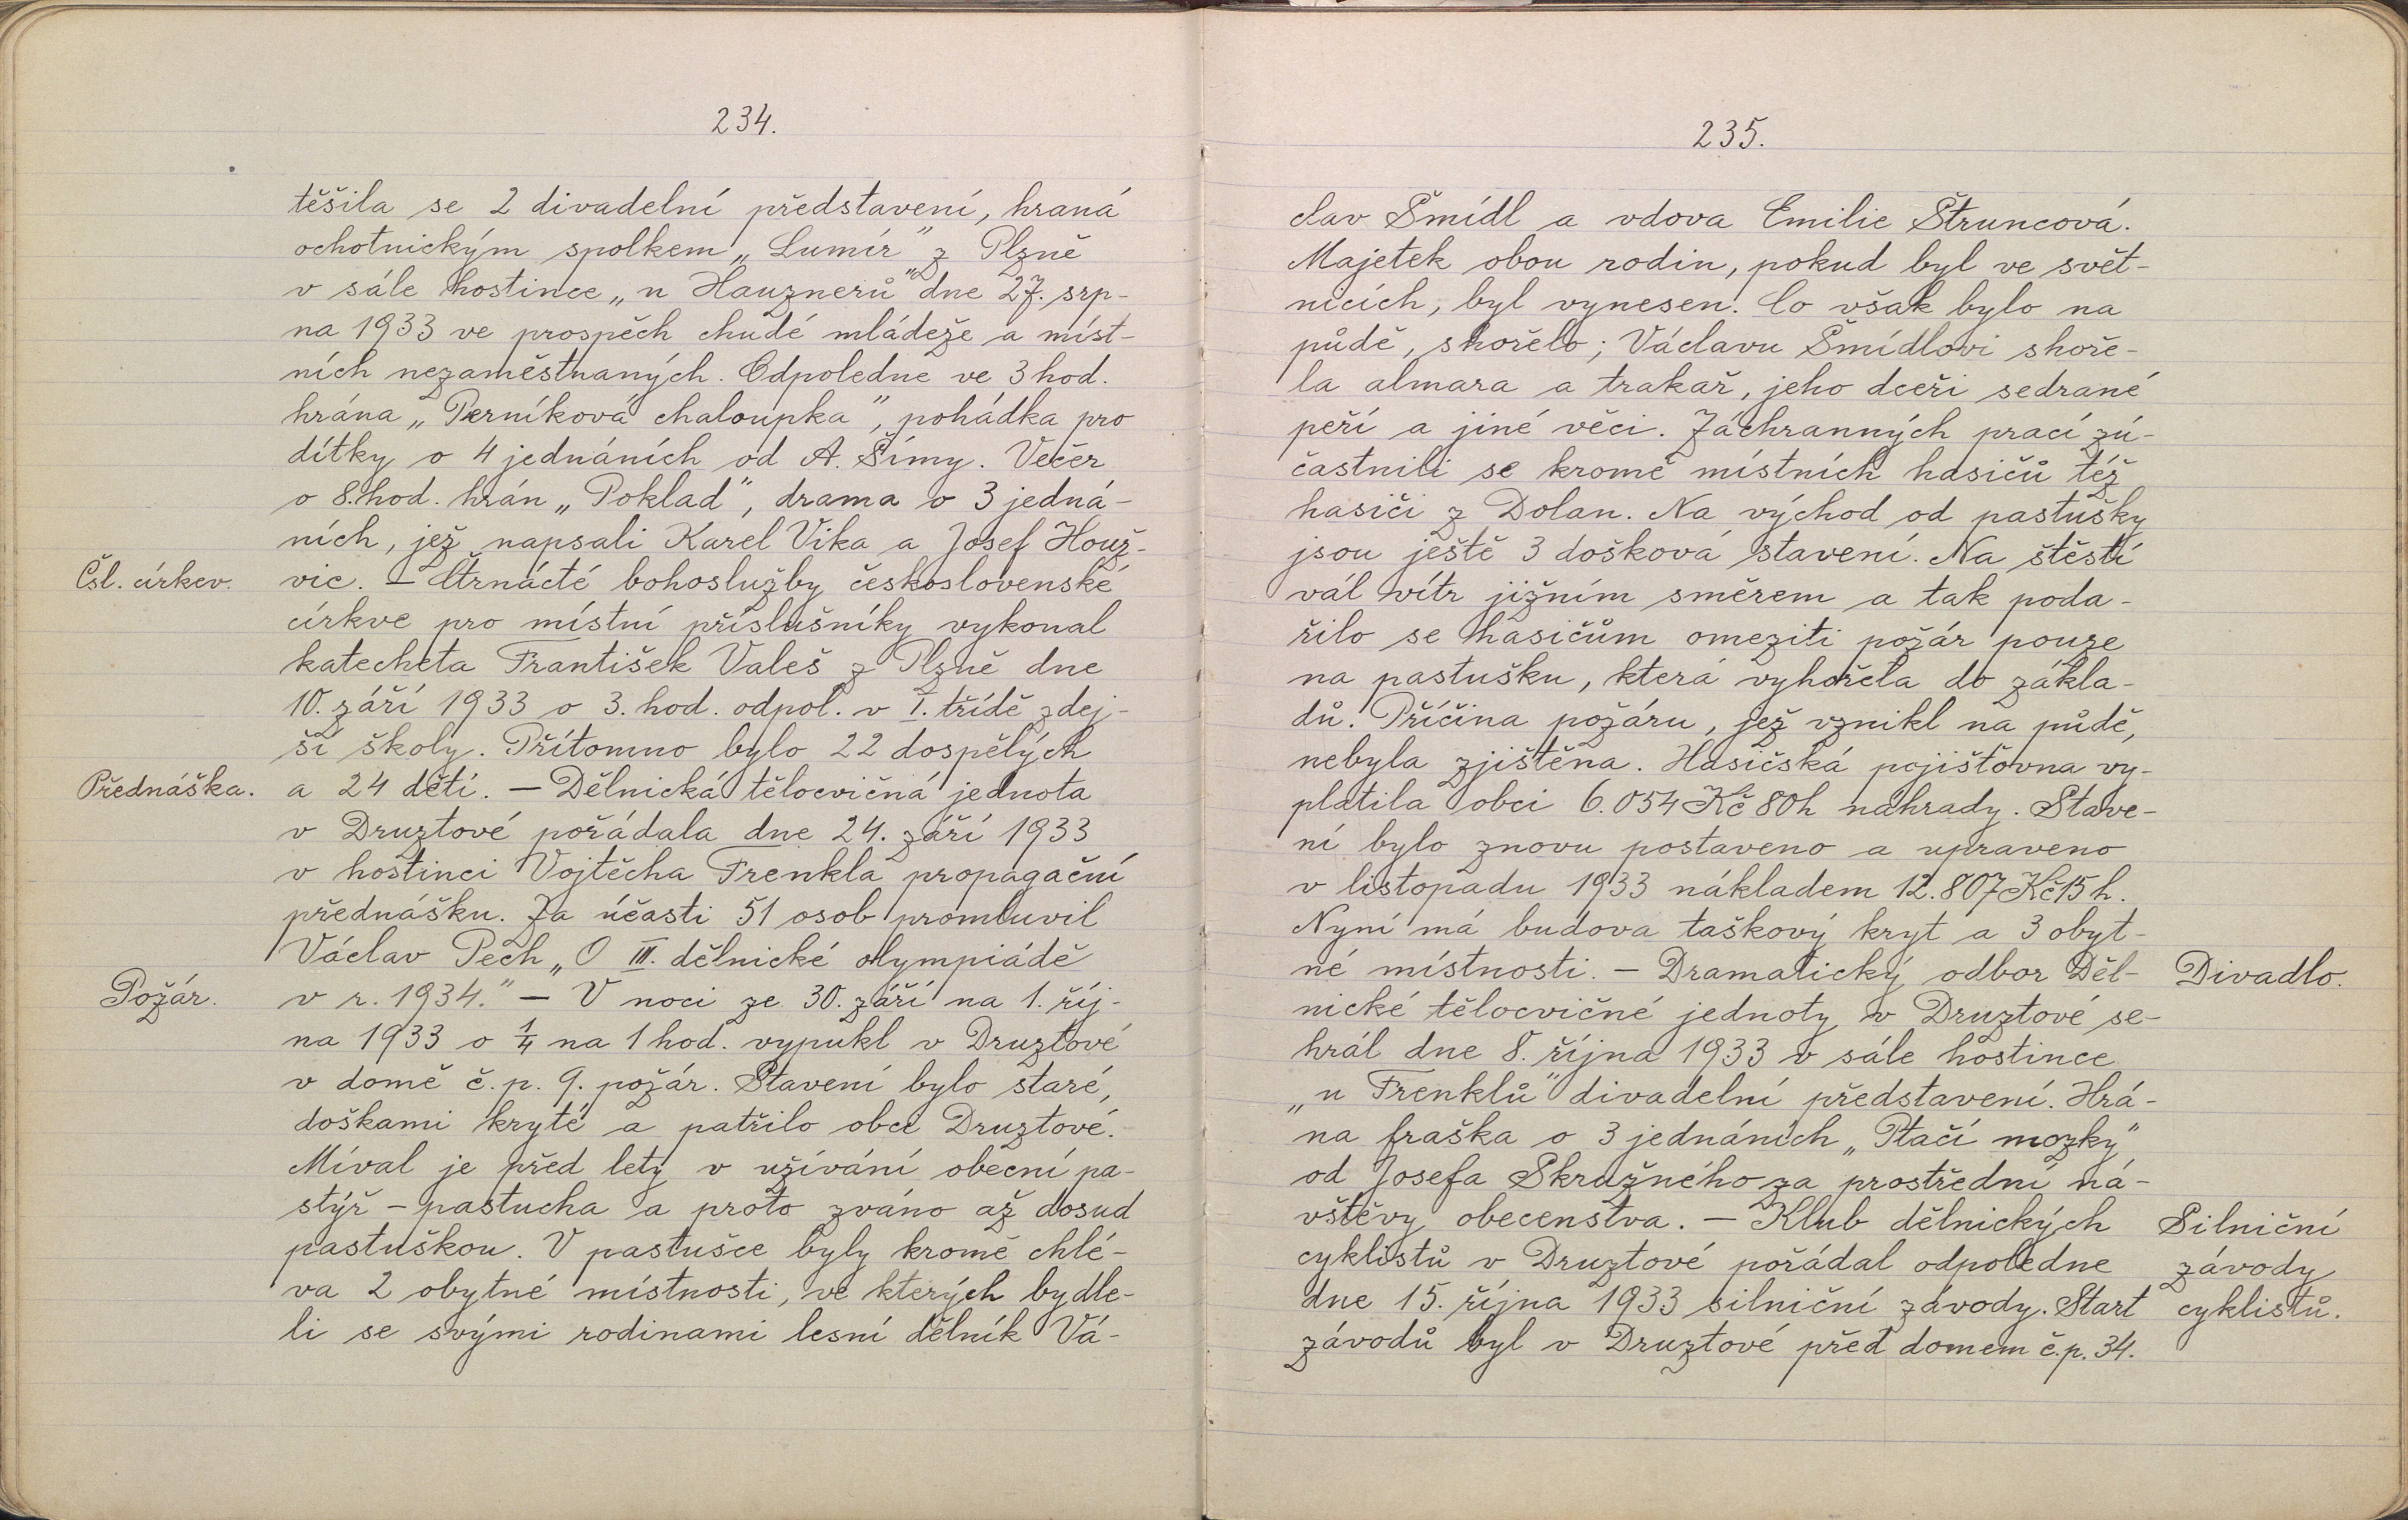 234.
těšila se 2 divadelní představení, hraná
ochotnickým spolkem „Lumír" z Plzně
v sále hostince „u Hauznerů" dne 27. srp-
na 1933 ve prospěch chudé mládeže a míst-
ních nezaměstnaných. Odpoledne ve 3 hod.
hrána „Perníková chaloupka", pohádka pro
dítky o 4 jednáních od A. Šímy. Večer
o 8. hod. hrán „Poklad", drama o 3 jedná-
ních, jež napsali Karel Vika a Josef Houž-
Čsl. církev. vic. – Čtrnácté bohoslužby československé
církve pro místní příslušníky vykonal
katecheta František Valeš z Plzně dne
10. září 1933 o 3. hod. odpol. v I. třídě zdej-
ší školy. Přítomno bylo 22 dospělých
Přednáška. a 24 dětí. – Dělnická tělocvičná jednota
v Druztové pořádala dne 24. září 1933
v hostinci Vojtěcha Frenkla propagační
přednášku. Za účasti 51 osob promluvil
Václav Pech „O III. dělnické olympiádě
Požár. v r. 1934." – V noci ze 30. září na 1. říj-
na 1933 o ¼ na 1 hod. vypukl v Druztové
v domě č. p. 9. požár. Stavení bylo staré,
doškami kryté a patřilo obci Druztové.
Míval je před lety v užívání obecní pa-
stýř – pastucha a proto zváno až dosud
pastuškou. V pastušce byly kromě chlé-
va 2 obytné místnosti, ve kterých bydle-
li se svými rodinami lesní dělník Vá-
235.
clav Šmídl a vdova Emilie Štruncová.
Majetek obou rodin, pokud byl ve svět-
nicích, byl vynesen. Co však bylo na
půdě, shořelo; Václavu Šmídlovi shoře-
la almara a trakař, jeho dceři sedrané
peří a jiné věci. Záchranných prací zú-
častnili se kromě místních hasičů též
hasiči z Dolan. Na východ od pastušky
jsou ještě 3 došková stavení. Na štěstí
vál vítr jižním směrem a tak poda-
řilo se hasičům omeziti požár pouze
na pastušku, která vyhořela do zákla-
dů. Příčina požáru, jež vznikl na půdě,
nebyla zjištěna. Hasičská pojišťovna vy-
platila obci 6.054 Kč 80 h náhrady. Stave-
ní bylo znovu postaveno a upraveno
v listopadu 1933 nákladem 12.807 Kč 15 h.
Nyní má budova taškový kryt a 3 obyt-
né místnosti. – Dramatický odbor Děl- Divadlo.
nické tělocvičné jednoty v Druztové se-
hrál dne 8. října 1933 v sále hostince
„u Frenklů" divadelní představení. Hrá-
na fraška o 3 jednáních „Ptačí mozky"
od Josefa Skružného za prostřední ná-
vštěvy obecenstva. – Klub dělnických Silniční
cyklistů v Druztové pořádal odpoledne závody
dne 15. října 1933 silniční závody. Start cyklistů.
závodů byl v Druztové před domem č. p. 34.